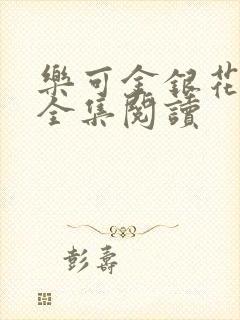 樂可金銀花
全集閱讀
彭壽